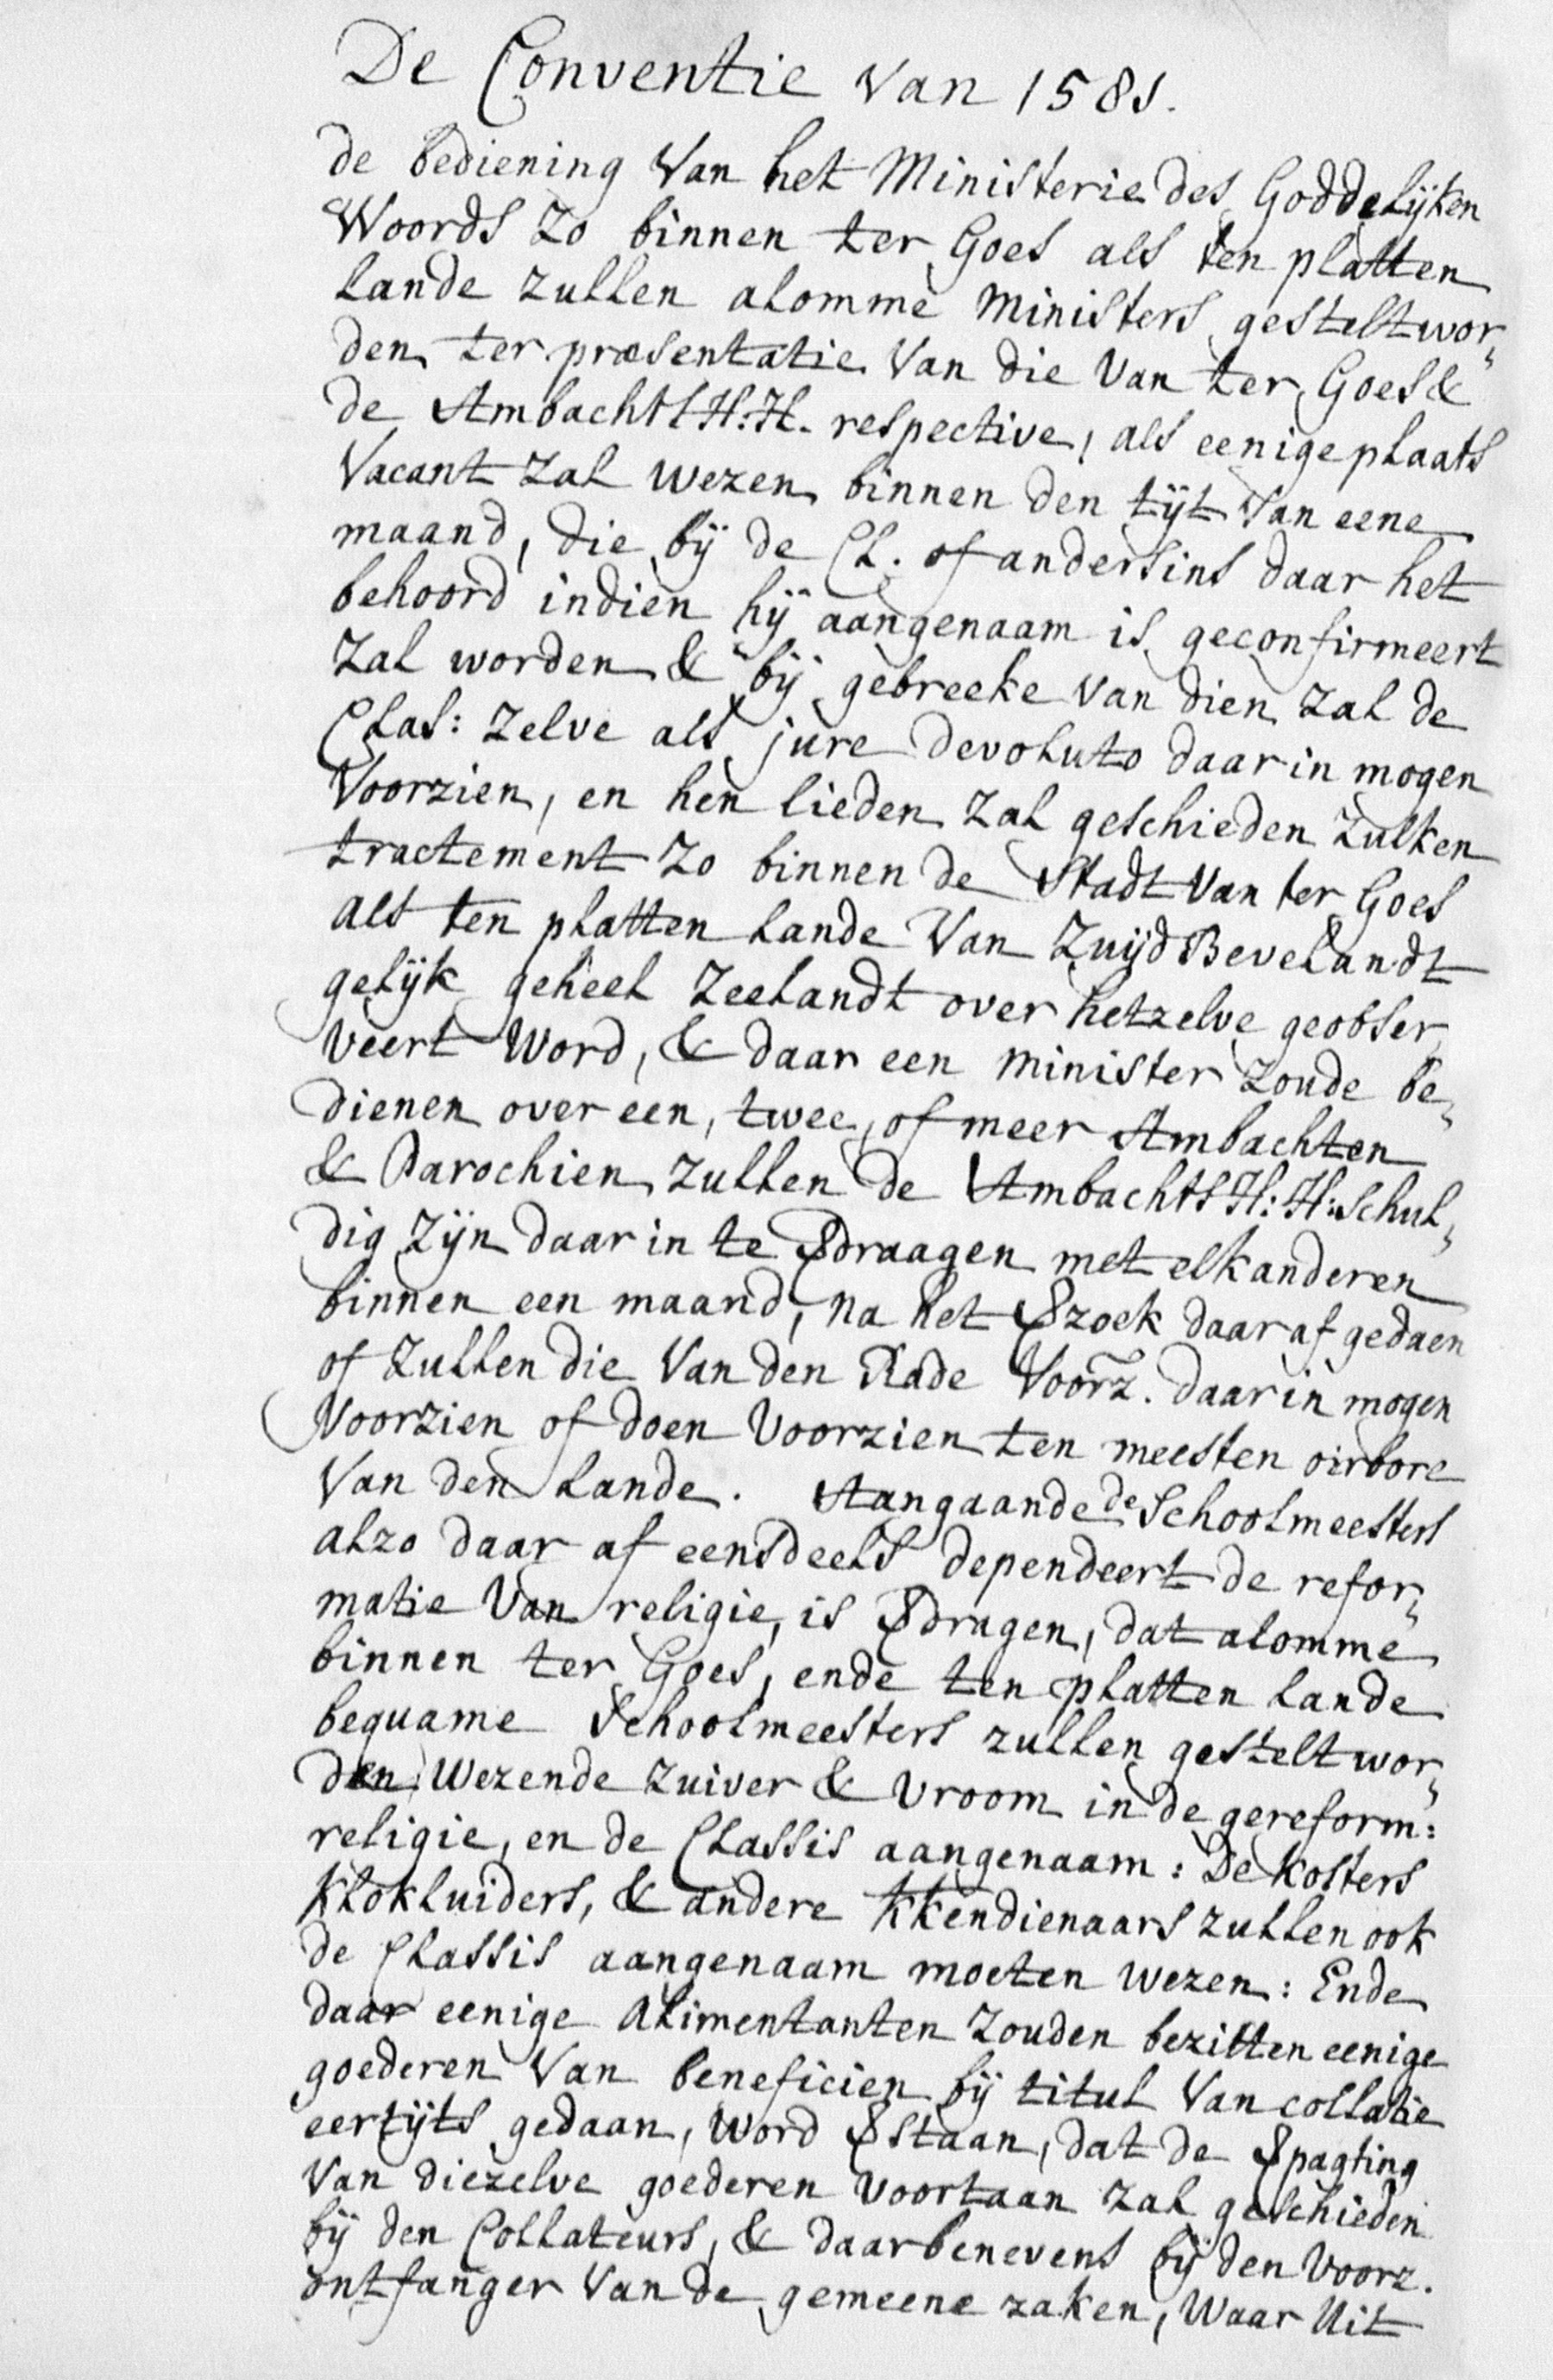 De Conventie van 1581.
de bediening van het Ministerie des Goddelijken
Woords zo binnen ter Goes als ten platten
lande zullen alomme Ministers gestelt wor„
den ter præsentatie van die van ter Goes &
de Ambachts H:H. respective, als eenige plaats
vacant zal wezen binnen den tijt van eene
maand, die bij de Cl. of andersins daar het
behoord indien hij aangenaam is geconfirmeert
zal worden & bij gebreeke van dien zal de
Clas: zelve als jure devoluto daar in mogen
voorzien, en hen lieden zal geschieden zulken
tractement zo binnen de Stadt van ter Goes
als ten platten lande van Zuijd Bevelandt
gelijk geheel Zeelandt over hetzelve geobser„
veert word, & daar een minister zoude be„
dienen over een, twee, of meer Ambachten
& Parochien zullen de Ambachts H:H: schul„
dig zijn daar in te Vdraagen met elkanderen
binnen een maand, na het Vzoek daar af gedaen
of zullen die van den Rade voorz. daar in mogen
voorzien of doen voorzien ten meesten oirbore
van den lande. Aangaande de Schoolmeesters
alzo daar af eensdeels dependeert de refor„
matie van religie, is Vdragen, dat alomme
binnen ter Goes, ende ten platten lande
bequame Schoolmeesters zullen gestelt wor„
den wezende zuiver & vroom in de gereform:
religie, en de Classis aangenaam: De Kosters
Klokluiders, & andere Kkendienaars zullen ook
de Classis aangenaam moeten wezen: Ende
daar eenige Alimentanten zouden bezitten eenige
goederen van beneficien bij titul van collatie
eertijts gedaan, word Vstaan, dat de Vpagting
van diezelve goederen voortaan zal geschieden
bij den Collateurs, & daarbenevens bij den voorz.
ontfanger van de gemeene zaken, waar uit